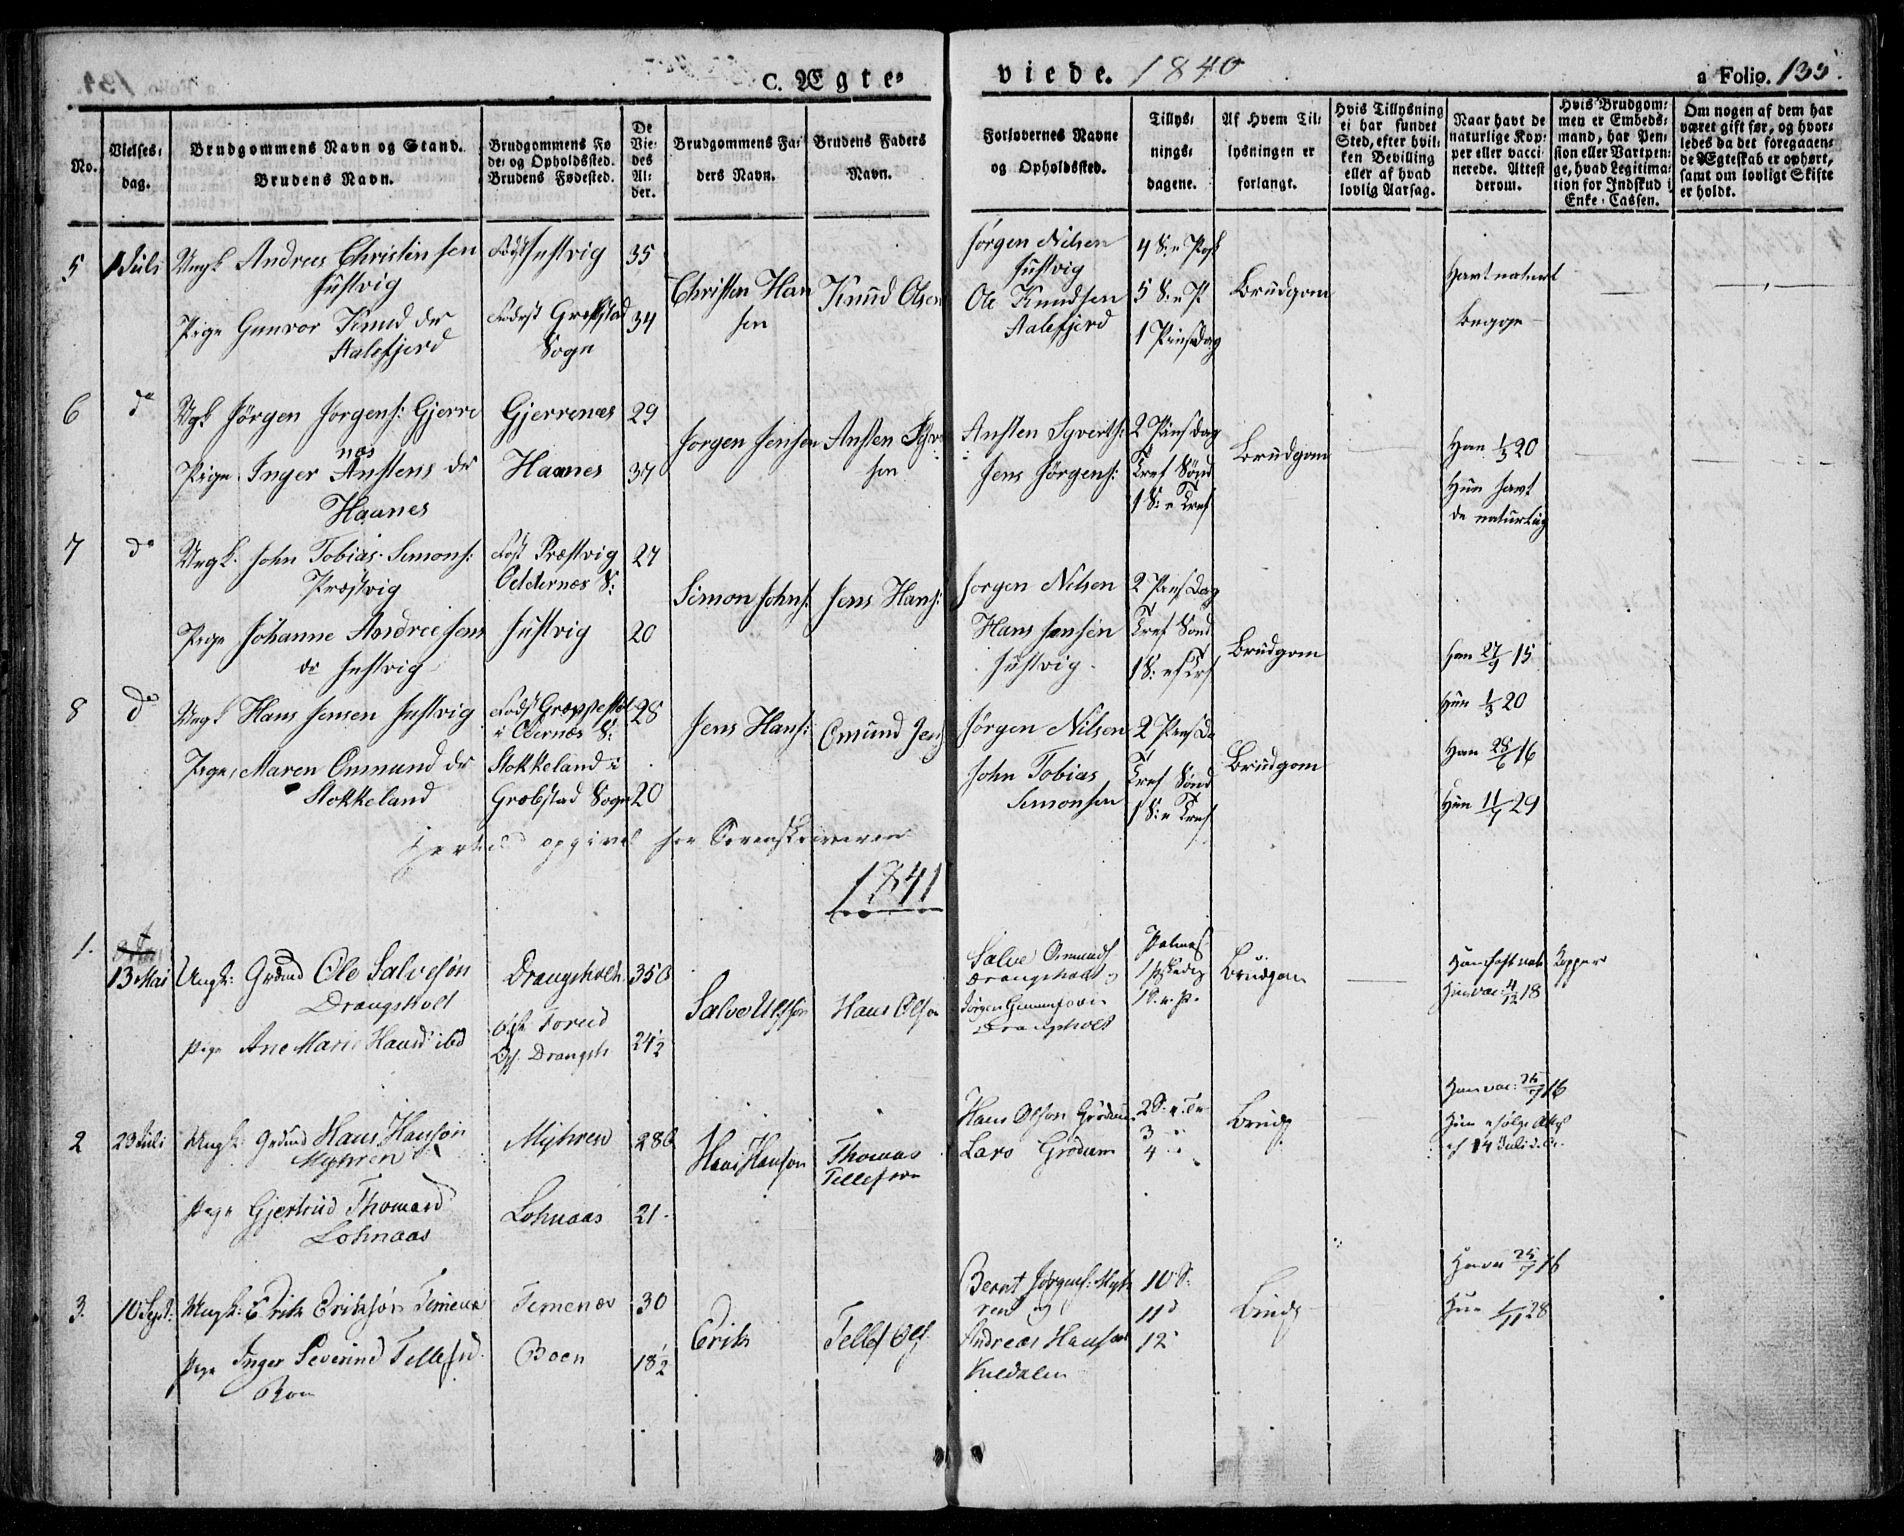 C. Ægte=
viede. 1840
a Folio. 135.
No.
Vielses=
dag.
Brudgommens Navn og Stand.
Brudens Navn.
Brudgommens Fø
de= og Opholdssted.
Brudens Fødested.
De
Vie=
des
Al=
der.
Brudgommens Fa=
ders Navn.
Brudens Faders
Navn.
Forlovernes Navne
og Opholdssted.
Tillys=
nings=
dagene.
Af Hvem Til=
lysningen er
forlangt.
Hvis Tillysning
ei har fundet
Sted, efter hvil=
ken Bevilling
eller af hvad
lovlig Aarsag.
Naar havt de
naturlige Kop=
per eller vacci=
nerede. Attest
derom.
Hvis Brudgom=
men er Embeds=
mand, har Pen=
sion eller Vartpen=
ge, hvad Legitima=
tion for Indskud i
Enke=Cassen.
Om nogen af dem har
været gift før, og hvor=
ledes da det foregaaen=
de Ægteskab er ophørt,
samt om lovligt Skifte
er holdt.
5
1 Juli
Ungk Andreas Christensen
Justvig
Pige Gunvor Knud dr
Aalefjerd
Født Justvig
Sogn
35
34
Christen Han
sen
Knud Olsen
Jørgen Nilsen
Justvig
Ole Knudsen
Aalefjerd
4 S: e Pask
5 S: e P
1 Pinsedag
Brudgom
Havt naturl
begge
6
do
Ugk Jørgen Jørgens: Gjerre
næs
Pige Inger Anstens dr
Haanes
Gjerrenæs
Haanes
29
37
Jørgen Jensen
Ansten Syv
sen
Ansten Syverts:
Jens Jørgens:
2 Pinsdag
Tref Sønd
1 S: e Tref
Brudgom
Han 1/3 20
Hun havt
de naturlig
7
do
Ungk. John Tobias Simons:
Præstvig
Pige Johanne Andrea Jens
dr Justvig
Præstvig
Oddernæs S:
Justvig
27
20
Simon Johns:
Jens Hans:
Jørgen Nilsen
Hans Jensen
Justvig
2 Pinsdag
Tref Sønd
Brudgom
Han 27/9 15
Hun 1/3 20
8
do
Ungk Hans Jensen Justvig
Pige Maren Ommund dr
Stokkeland
Stokkeland i
Grebstad Sogn
28
20
Jens Hans:
Omund Jens
Jørgen Nilsen
John Tobias
Simonsen
2 Pinsd
Tref Sønd
1 S: e Tref
Brudgom
Han 28/6 16
Hun 11/7 29
opgivet for Sorenskriveren
1841
1.
13 Mai
Ungk: Grdmd Ole Salvesøn
Drangsholt
Pige Ane Marie Hansd ibd
Drangsholt
Drangsh
35
24 1/2
Salve
Hans Olsøn
Salve Omunds
Drangsholt og
Jørgen
Drangsholt
Palmes
1 Paskedag
1 S. e. P.
Brudgom
Han haft nat: Kopper
Hun vac: 11/12 18
2
29 Juli
Ungk: Grdmd Hans Hansøn
Myhren
Pige Gjertrud Thomasd
Lohnaas
Myhren
Lohnaas
28
21
Hans Hansøn
Thomas
Tellefsen
Hans Olsøn Grødum
Lars Grødum
2 S. e. Tr
3
4
Brudg
Han vac: 26/7 16
Hun
14 Juli
3.
10 Sept:
Ungk: Erik Eriksøn Temenæs
Pige Inger Severine Tellefsd
Boen
Temenæs
Boen
30
18 1/2
Erik
Tellef Ols
Bernt Jørgens: Myh
ren og
Andreas Hansøn
10 S:
11 d
12
Brudg
Han 25/7 16
Hun 1/11 28